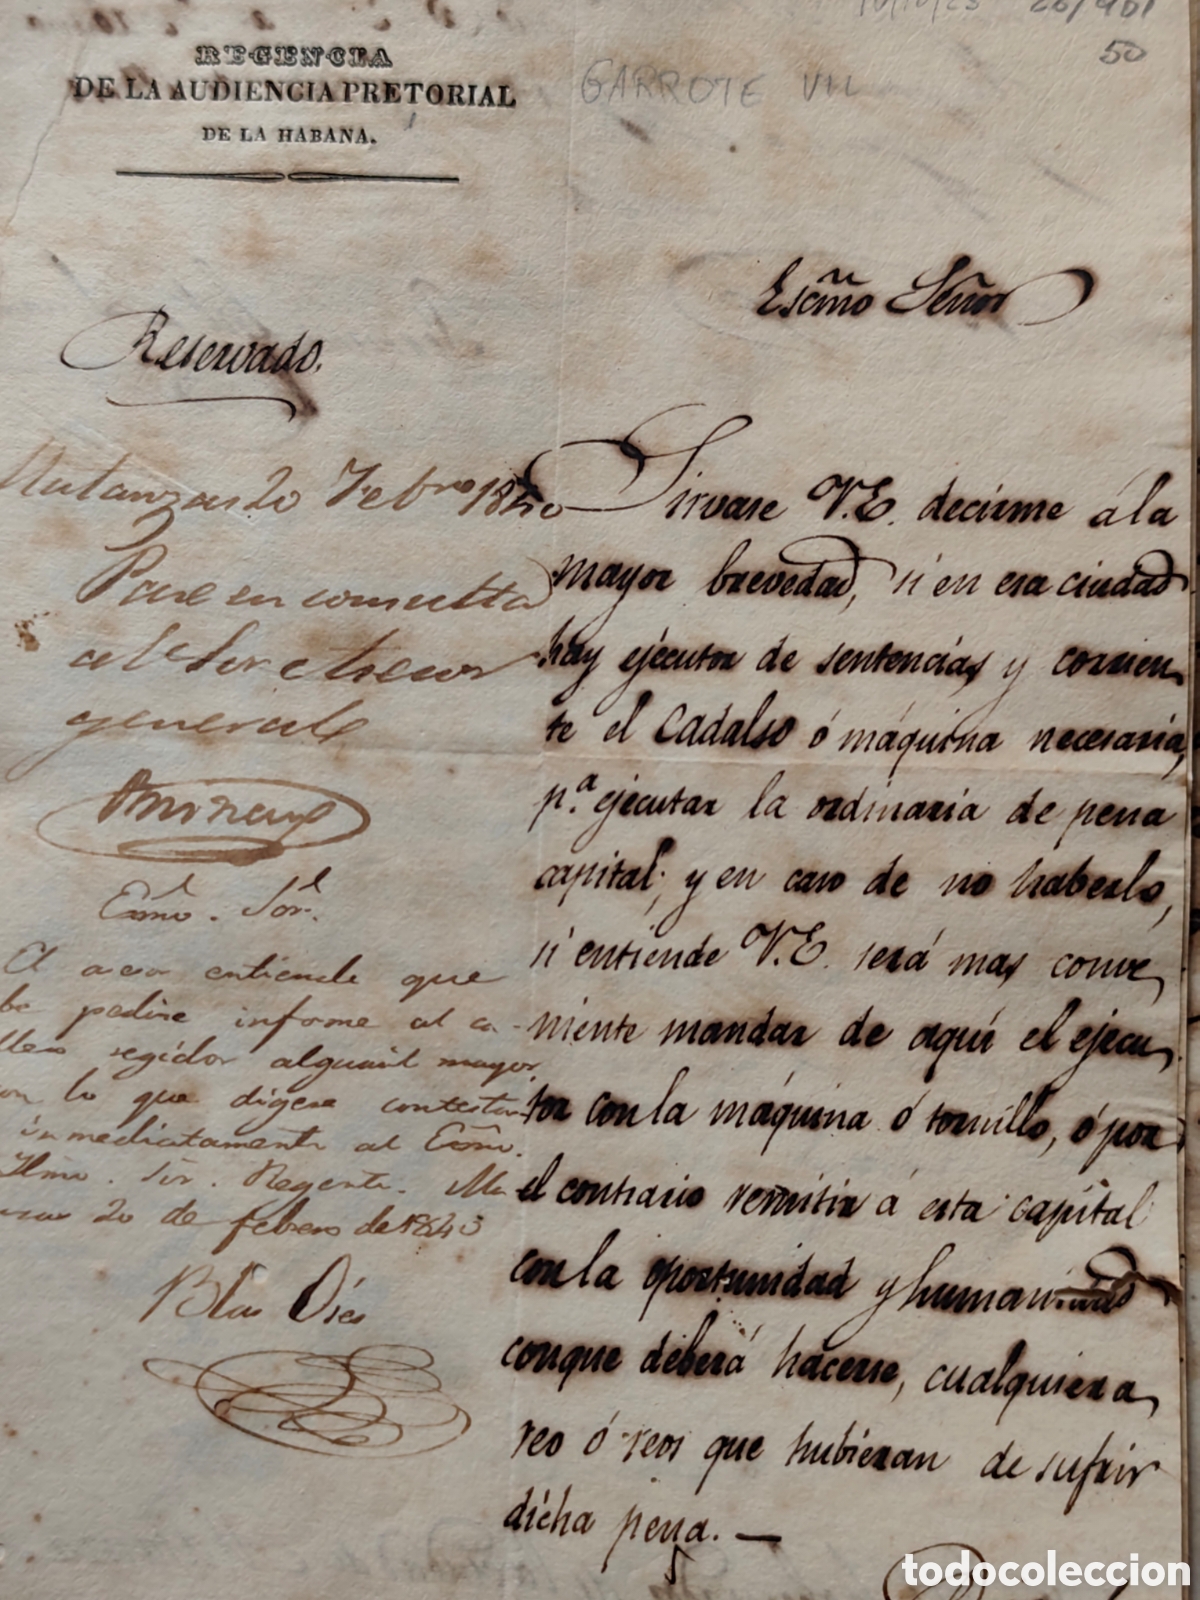 26/401
50
GARROTE VIL
REGENCIA
DE LA AUDIENCIA PRETORIAL
DE LA HABANA.
Reservado.
Matanzas 20 Febro 1840
Pase en consulta
al Sor Asesor
general
Exmo. Sor.
El asesor entiende que
be pedirse informe al ca-
llero regidor alguacil mayor,
con lo que digere contestar
inmediatamente al Exmo.
Ilmo. Sor. Regente. Ma
zas 20 de febrero de 1843
Blas Osés
Escmo Señor
Sirvase V.E. decirme á la
mayor brevedad, si en esa ciudad
hay ejécutor de sentencias y corrien
te el Cadalso ó máquina necesaria,
pa. ejecutar la ordinaria de pena
capital; y en caso de no haberlo,
si entiende V.E. será mas conve
niente mandar de aquí el ejecu
tor con la máquina ó tornillo, ó por
el contrario remitir á esta capital
con la oportunidad y humanidad
conque deberá hacerse, cualquiera
reo ó reos que hubieran de sufrir
dicha pena.
todocoleccion